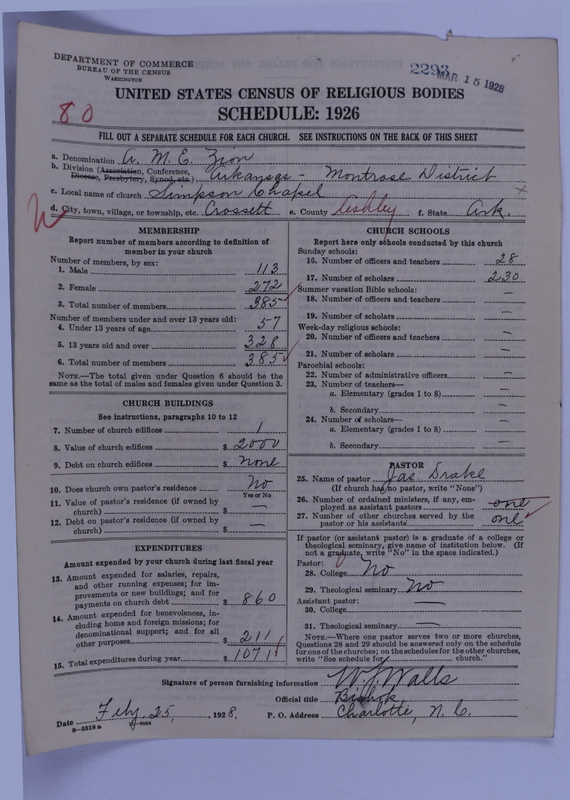 DEPARTMENT OF COMMERCE
BUREAU OF THE CENSUS
WASHINGTON
2293 MAR 15 1928
UNITED STATES CENSUS OF RELIGIOUS BODIES
SCHEDULE: 1926
80
FILL OUT A SEPARATE SCHEDULE FOR EACH CHURCH. SEE INSTRUCTIONS ON THE BACK OF THIS SHEET
a. Denomination A. M. E. Zion
b. Division (Association, Conference, Diocese, Presbytery, Synod, etc.) Arkansas - Montrose District
c. Local name of church Simpson Chapel
d. City, town, village, or township, etc. Crossett e. County Ashley f. State Ark.
MEMBERSHIP
Report number of members according to definition of member in your church
Number of members, by sex:
1. Male 113
2. Female 272
3. Total number of members 385
Number of members under and over 13 years old:
4. Under 13 years of age 57
5. 13 years old and over 328
6. Total number of members 385
NOTE.—The total given under Question 6 should be the same as the total of males and females given under Question 3.
CHURCH BUILDINGS
See instructions, paragraphs 10 to 12
7. Number of church edifices 1
8. Value of church edifices $ 2000
9. Debt on church edifices $ none
10. Does church own pastor's residence No
Yes or No
11. Value of pastor's residence (if owned by church) $ —
12. Debt on pastor's residence (if owned by church) $ —
EXPENDITURES
Amount expended by your church during last fiscal year
13. Amount expended for salaries, repairs, and other running expenses; for improvements or new buildings; and for payments on church debt $ 860
14. Amount expended for benevolences, including home and foreign missions; for denominational support; and for all other purposes $ 211
15. Total expenditures during year $ 1071
CHURCH SCHOOLS
Report here only schools conducted by this church
Sunday schools:
16. Number of officers and teachers 28
17. Number of scholars 230
Summer vacation Bible schools:
18. Number of officers and teachers —
19. Number of scholars —
Week-day religious schools:
20. Number of officers and teachers —
21. Number of scholars —
Parochial schools:
22. Number of administrative officers —
23. Number of teachers—
a. Elementary (grades 1 to 8) —
b. Secondary —
24. Number of scholars—
a. Elementary (grades 1 to 8) —
b. Secondary —
PASTOR
25. Name of pastor Jas Drake
(If church has no pastor, write "None")
26. Number of ordained ministers, if any, employed as assistant pastors one
27. Number of other churches served by the pastor or his assistants one
If pastor (or assistant pastor) is a graduate of a college or theological seminary, give name of institution below. (If not a graduate, write "No" in the space indicated.)
Pastor:
28. College No
29. Theological seminary No
Assistant pastor:
30. College —
31. Theological seminary —
NOTE.—Where one pastor serves two or more churches, Questions 28 and 29 should be answered only on the schedule for one of the churches; on the schedules for the other churches, write "See schedule for church."
Signature of person furnishing information W. J. Walls
Official title Bishop
Date Feby. 25, 1928. P. O. Address Charlotte, N. C.
8-5518a